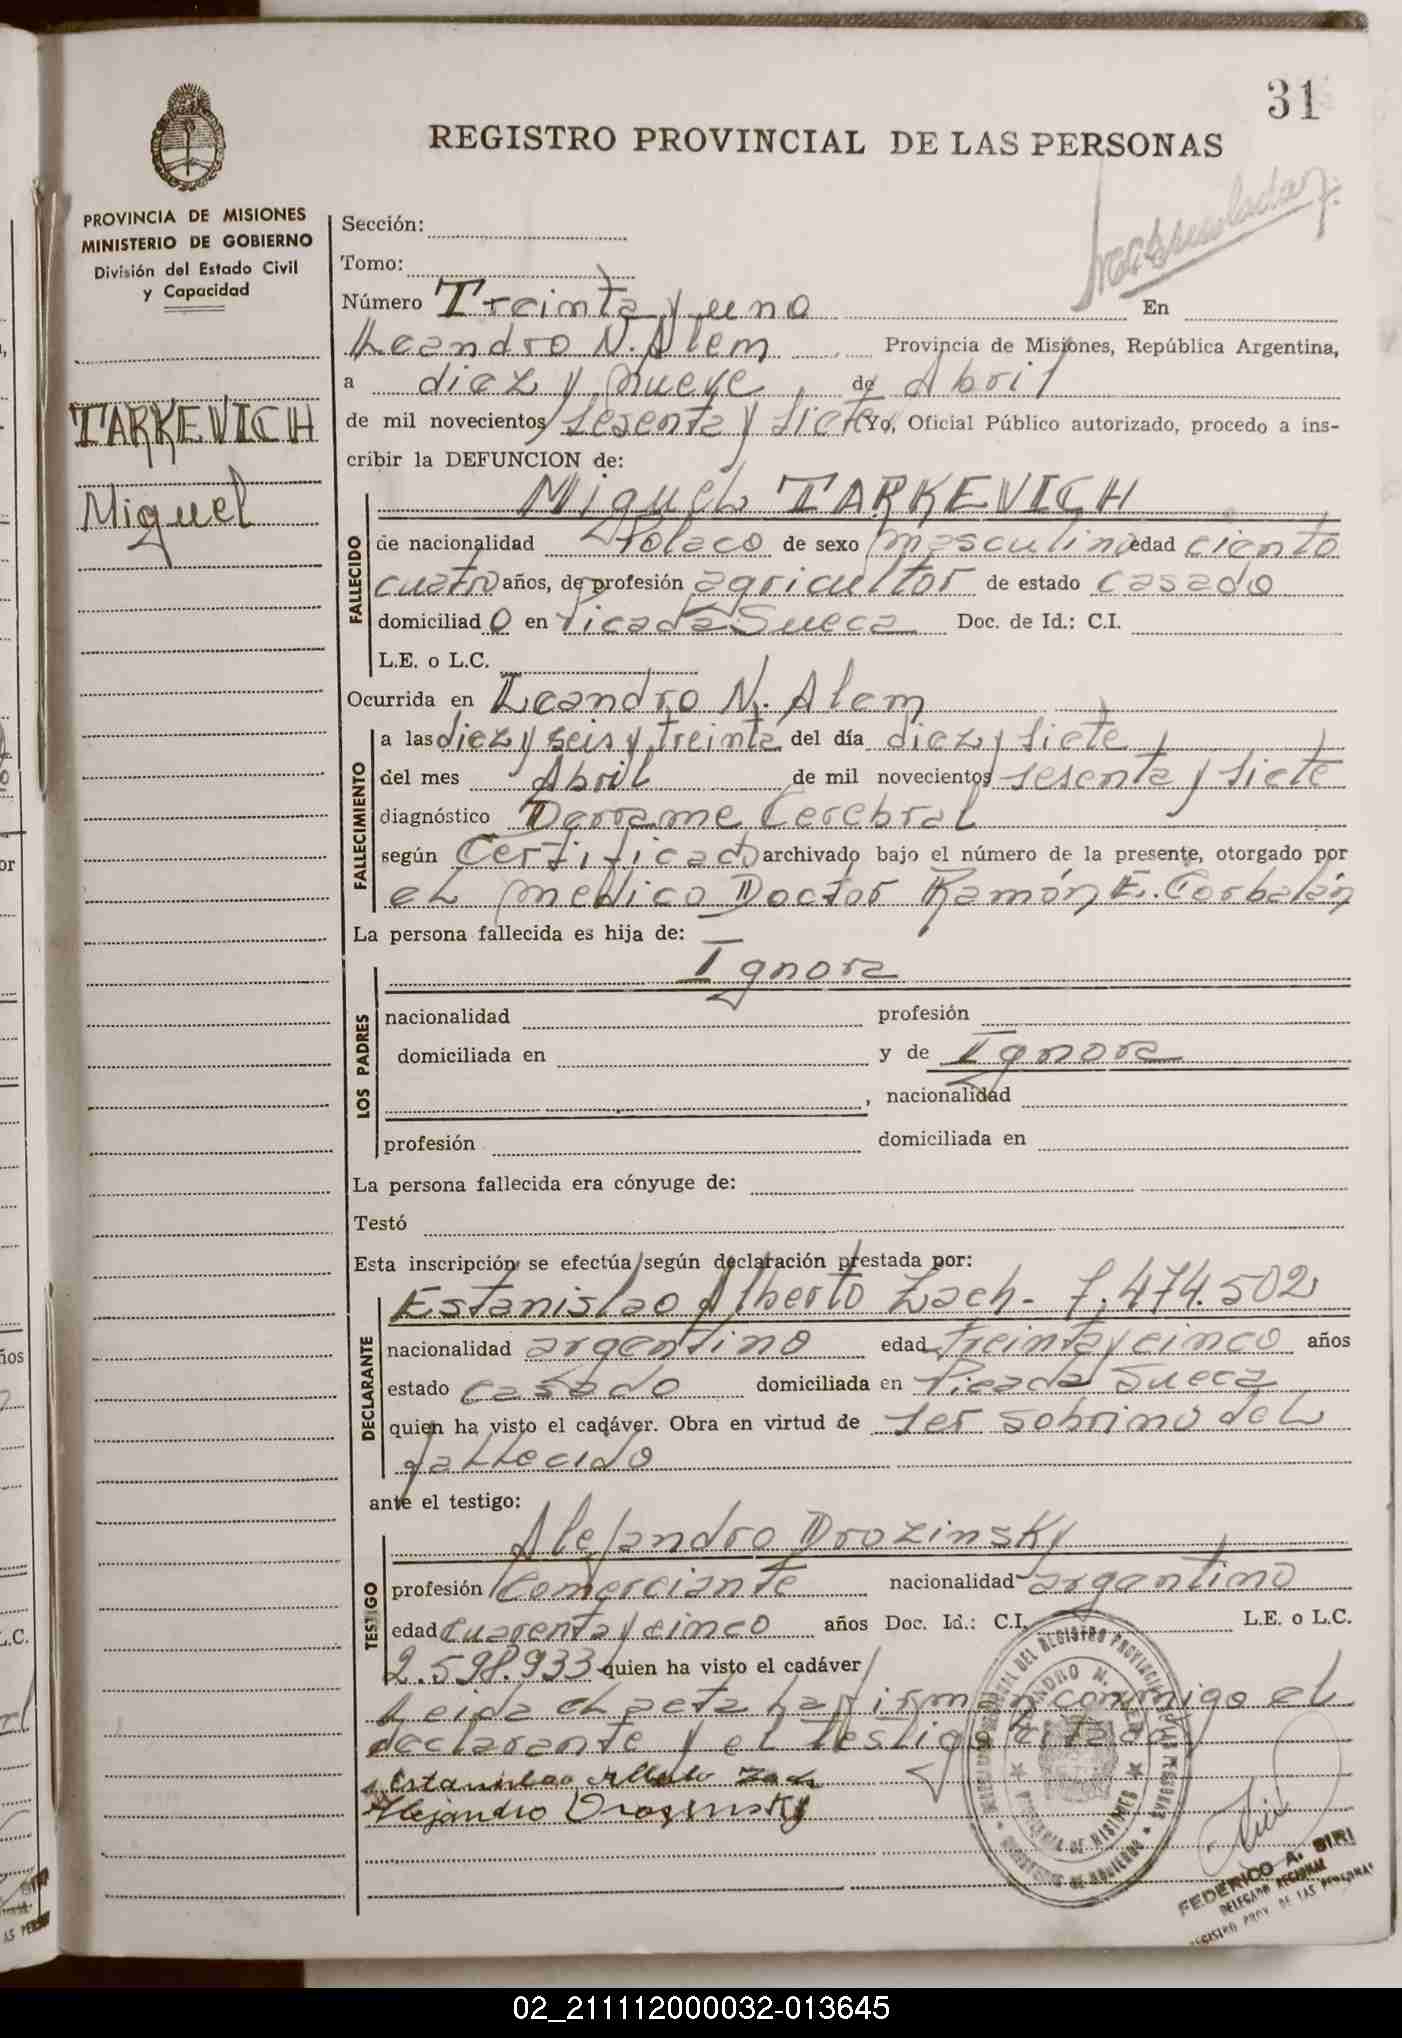 31
REGISTRO PROVINCIAL DE LAS PERSONAS
PROVINCIA DE MISIONES
MINISTERIO DE GOBIERNO
División del Estado Civil
y Capacidad
TARKEVICH
Miguel
Sección:
Tomo:
Número Treinta y uno En
Leandro N. Alem Provincia de Misiones, República Argentina,
a diez y nueve de Abril
de mil novecientos sesenta y siete Yo, Oficial Público autorizado, procedo a ins-
cribir la DEFUNCION de:
Miguel TARKEVICH
FALLECIDO
de nacionalidad Polaco de sexo masculino edad ciento
cuatro años, de profesión agricultor de estado casado
domiciliad o en Picada Sueca Doc. de Id.: C.I.
L.E. o L.C.
Ocurrida en Leandro N. Alem
FALLECIMIENTO
a las diez y seis y treinta del día diez y siete
del mes Abril de mil novecientos sesenta y siete
diagnóstico Derrame Cerebral
según Certificado archivado bajo el número de la presente, otorgado por
el médico Doctor Ramón E. Corbalán
La persona fallecida es hija de:
Ignora
LOS PADRES
nacionalidad profesión
domiciliada en y de Ignora
, nacionalidad
profesión domiciliada en
La persona fallecida era cónyuge de:
Testó
Esta inscripción se efectúa según declaración prestada por:
Estanislao Alberto Zach- 7.474.502
DECLARANTE
nacionalidad argentino edad treinta y cinco años
estado casado domiciliada en Picada Sueca
quien ha visto el cadáver. Obra en virtud de ser sobrino del
fallecido
ante el testigo:
Alejandro Drozinsky
TESTIGO
profesión Comerciante nacionalidad argentino
edad cuarenta y cinco años Doc. Id.: C.I. L.E. o L.C.
2.598.933 quien ha visto el cadáver
Leida el acta la firman conmigo el
declarante y el testigo citado
Estanislao Alberto Zach
Alejandro Drozinsky
PROVINCIA DE MISIONES
FEDERICO A. BIRI
DELEGADO REGIONAL
REGISTRO PROV. DE LAS PERSONAS
02_211112000032-013645